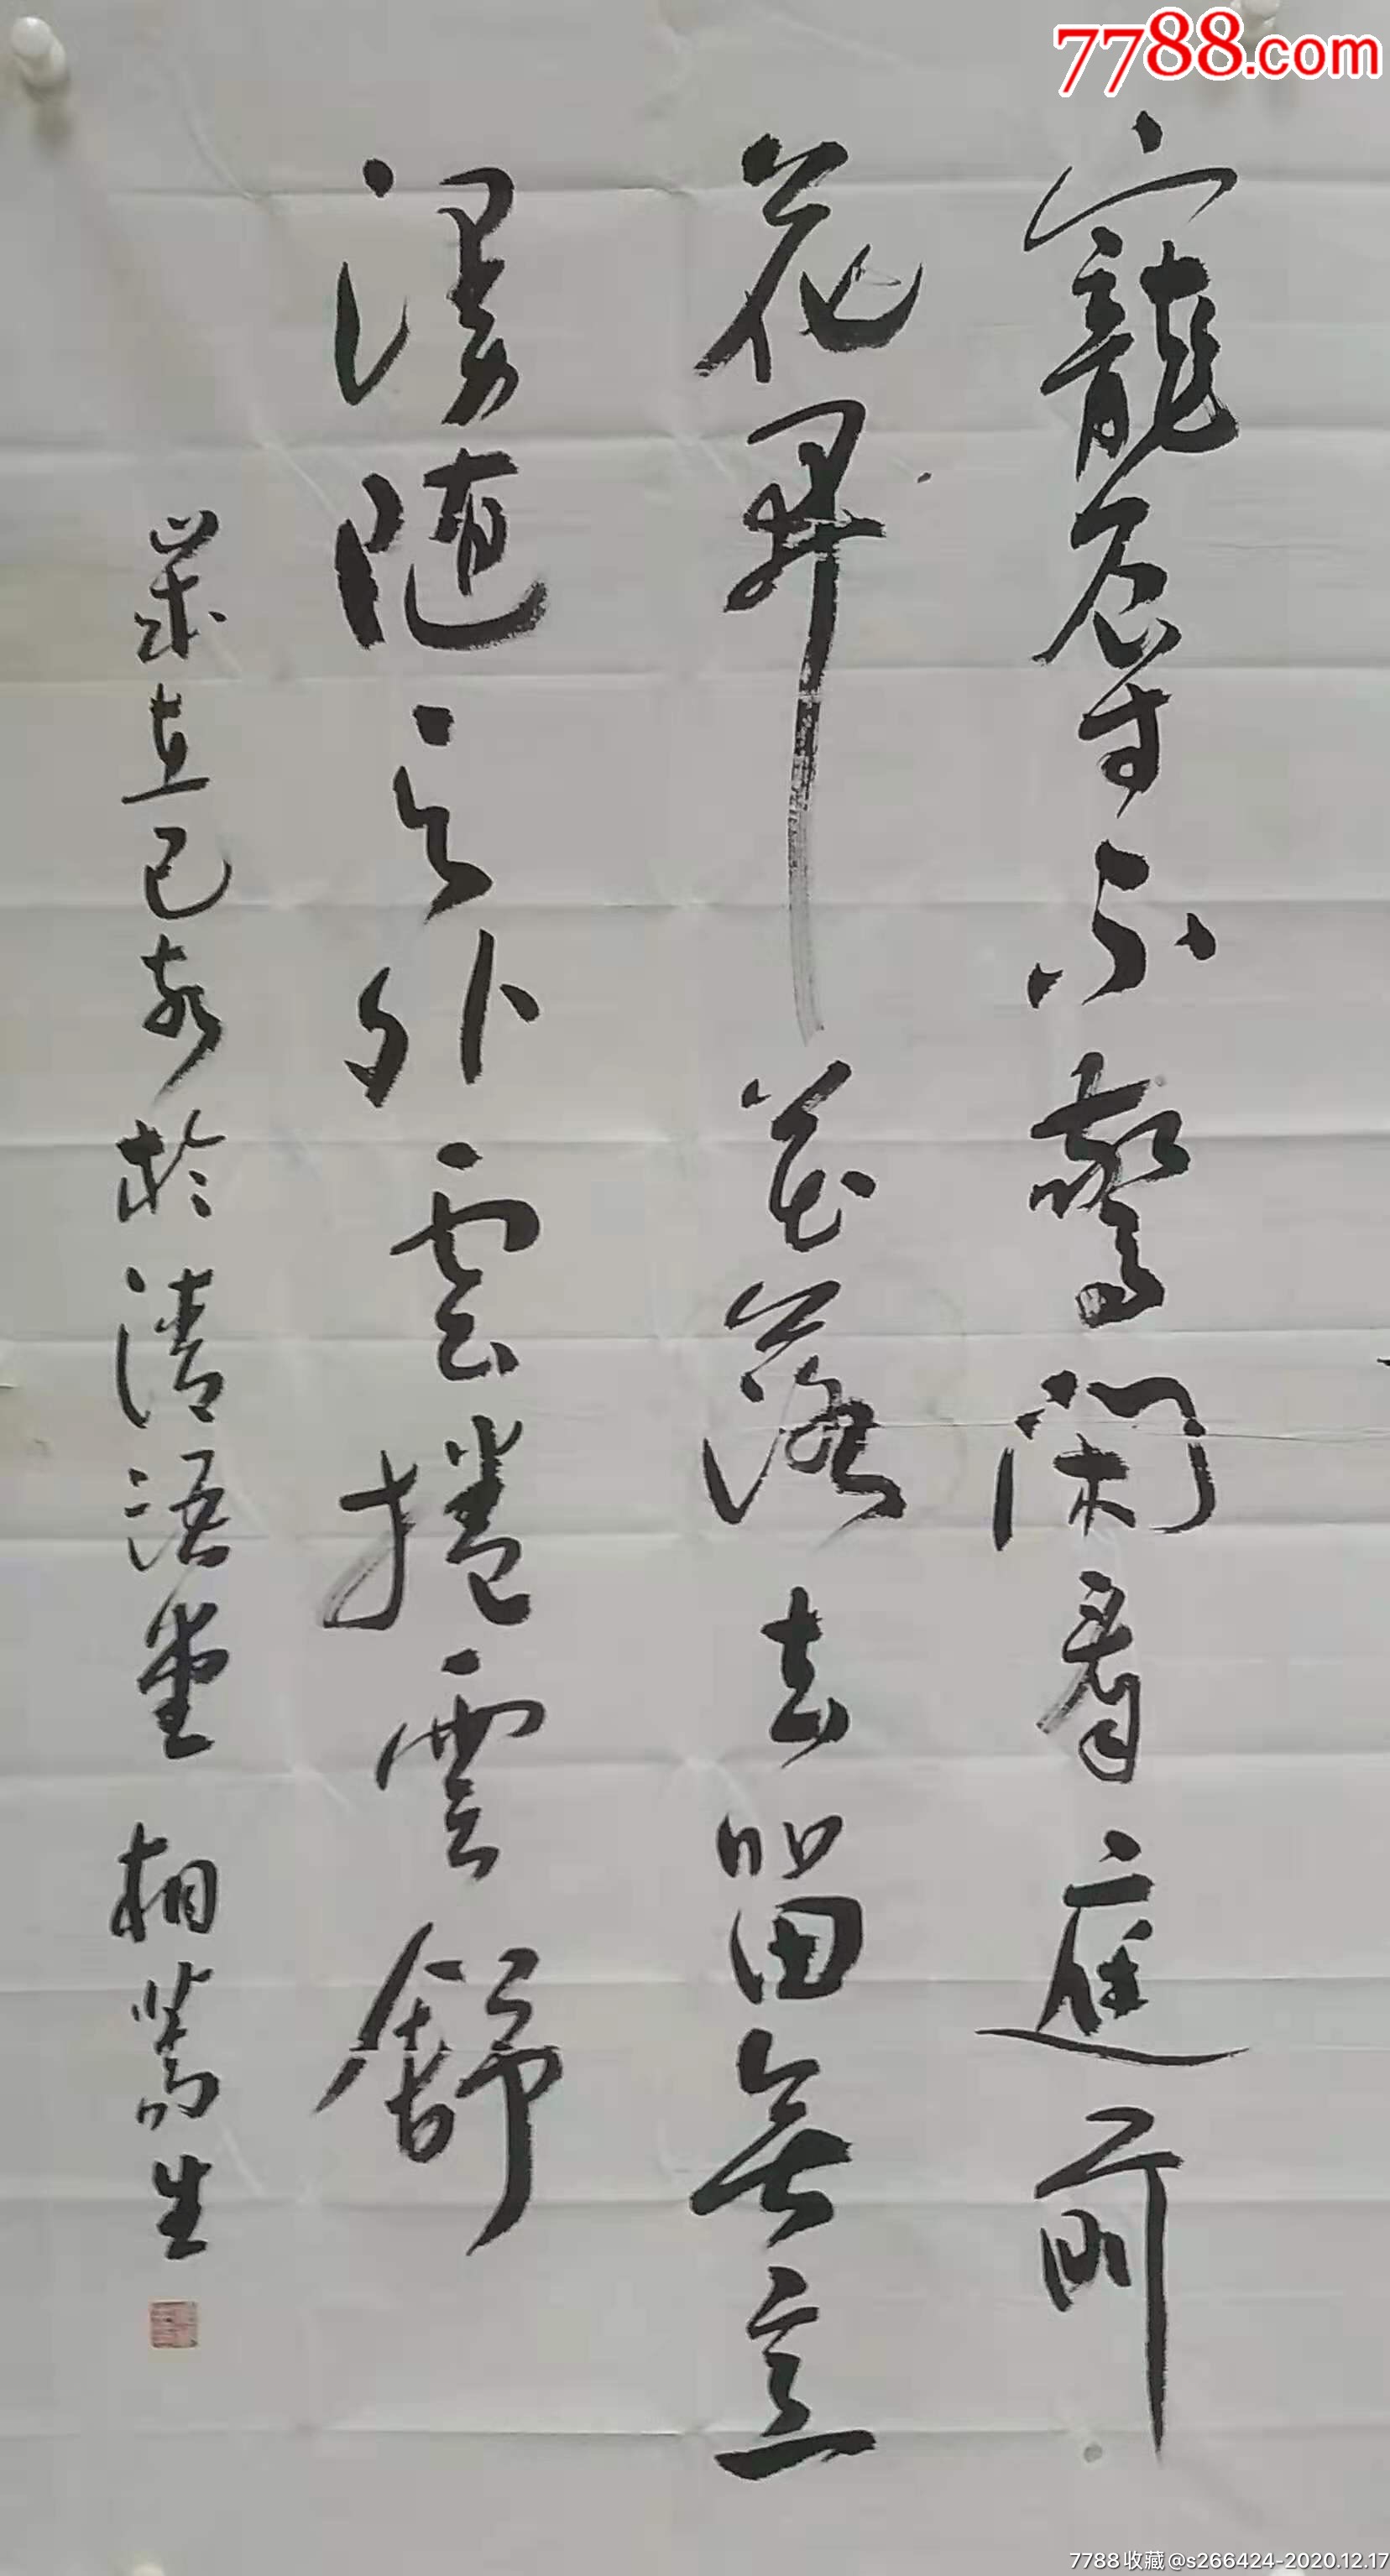 7788.com
寵辱不驚閑看庭前
花开花落去留無意
漫随天外雲捲雲舒
歲在己亥於清語堂 相嵩生
7788收藏@s266424-2020.12.17